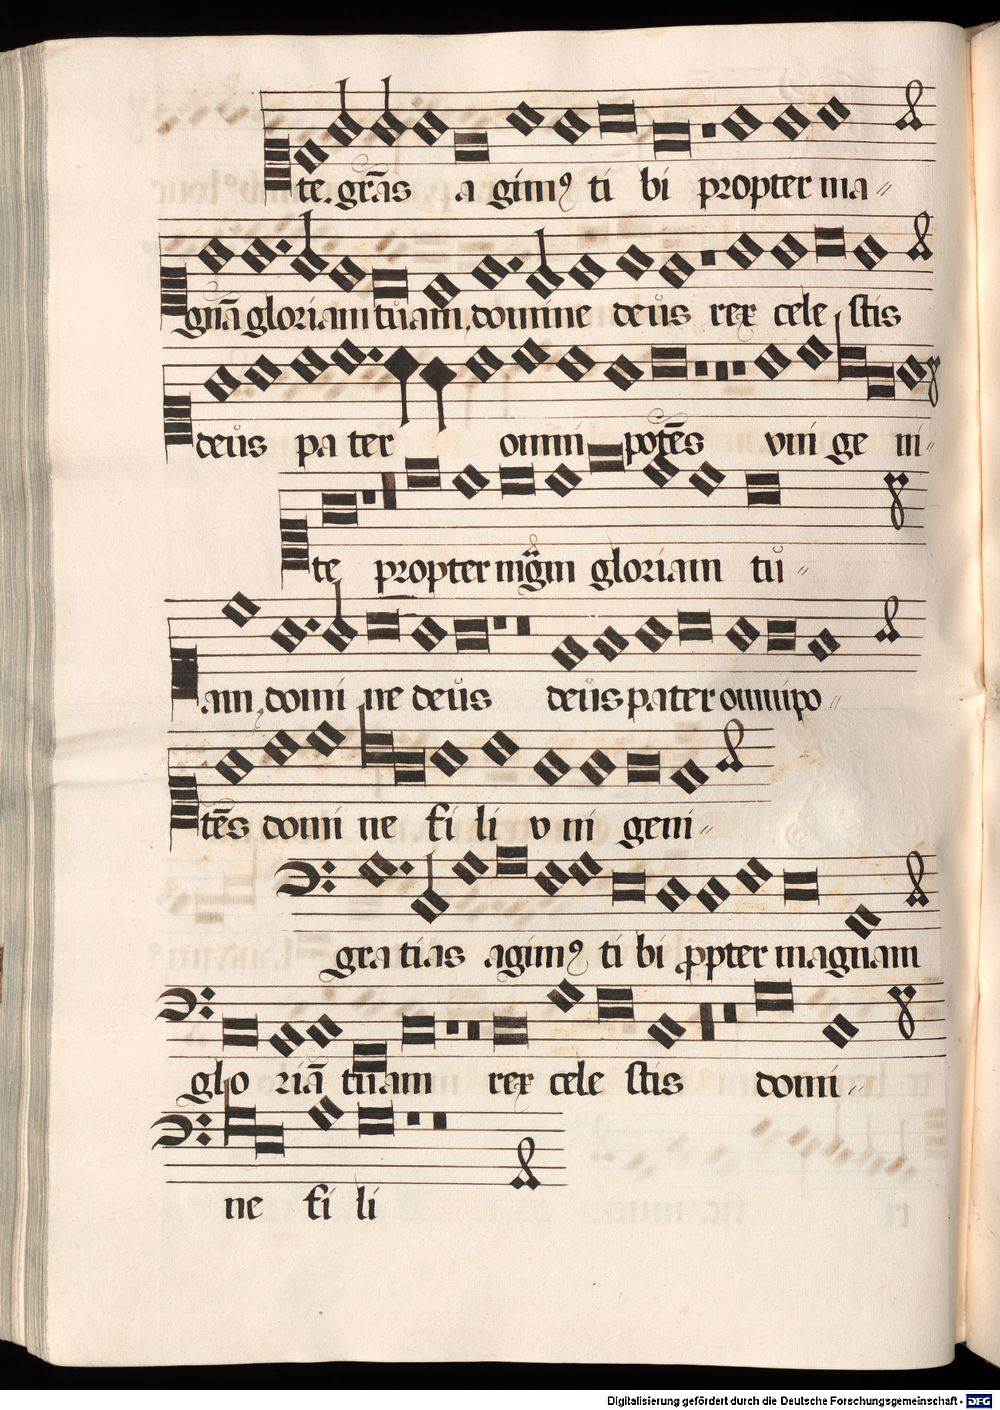 te. gr̄as a gimꝰ ti bi propter ma〃
gnā gloriam tuam, domine deus rex cele stis
deus pa ter omni potēs vni ge ni〃
te propter mḡm gloriam tu〃
am, domi ne deus deus pater omnipo〃
tēs domi ne fi li v ni geni〃
gratias agimꝰ ti bi ꝓpter magnam
glo riā tuam rex cele stis domi〃
ne fi li
Digitalisierung gefördert durch die Deutsche Forschungsgemeinschaft - DFG